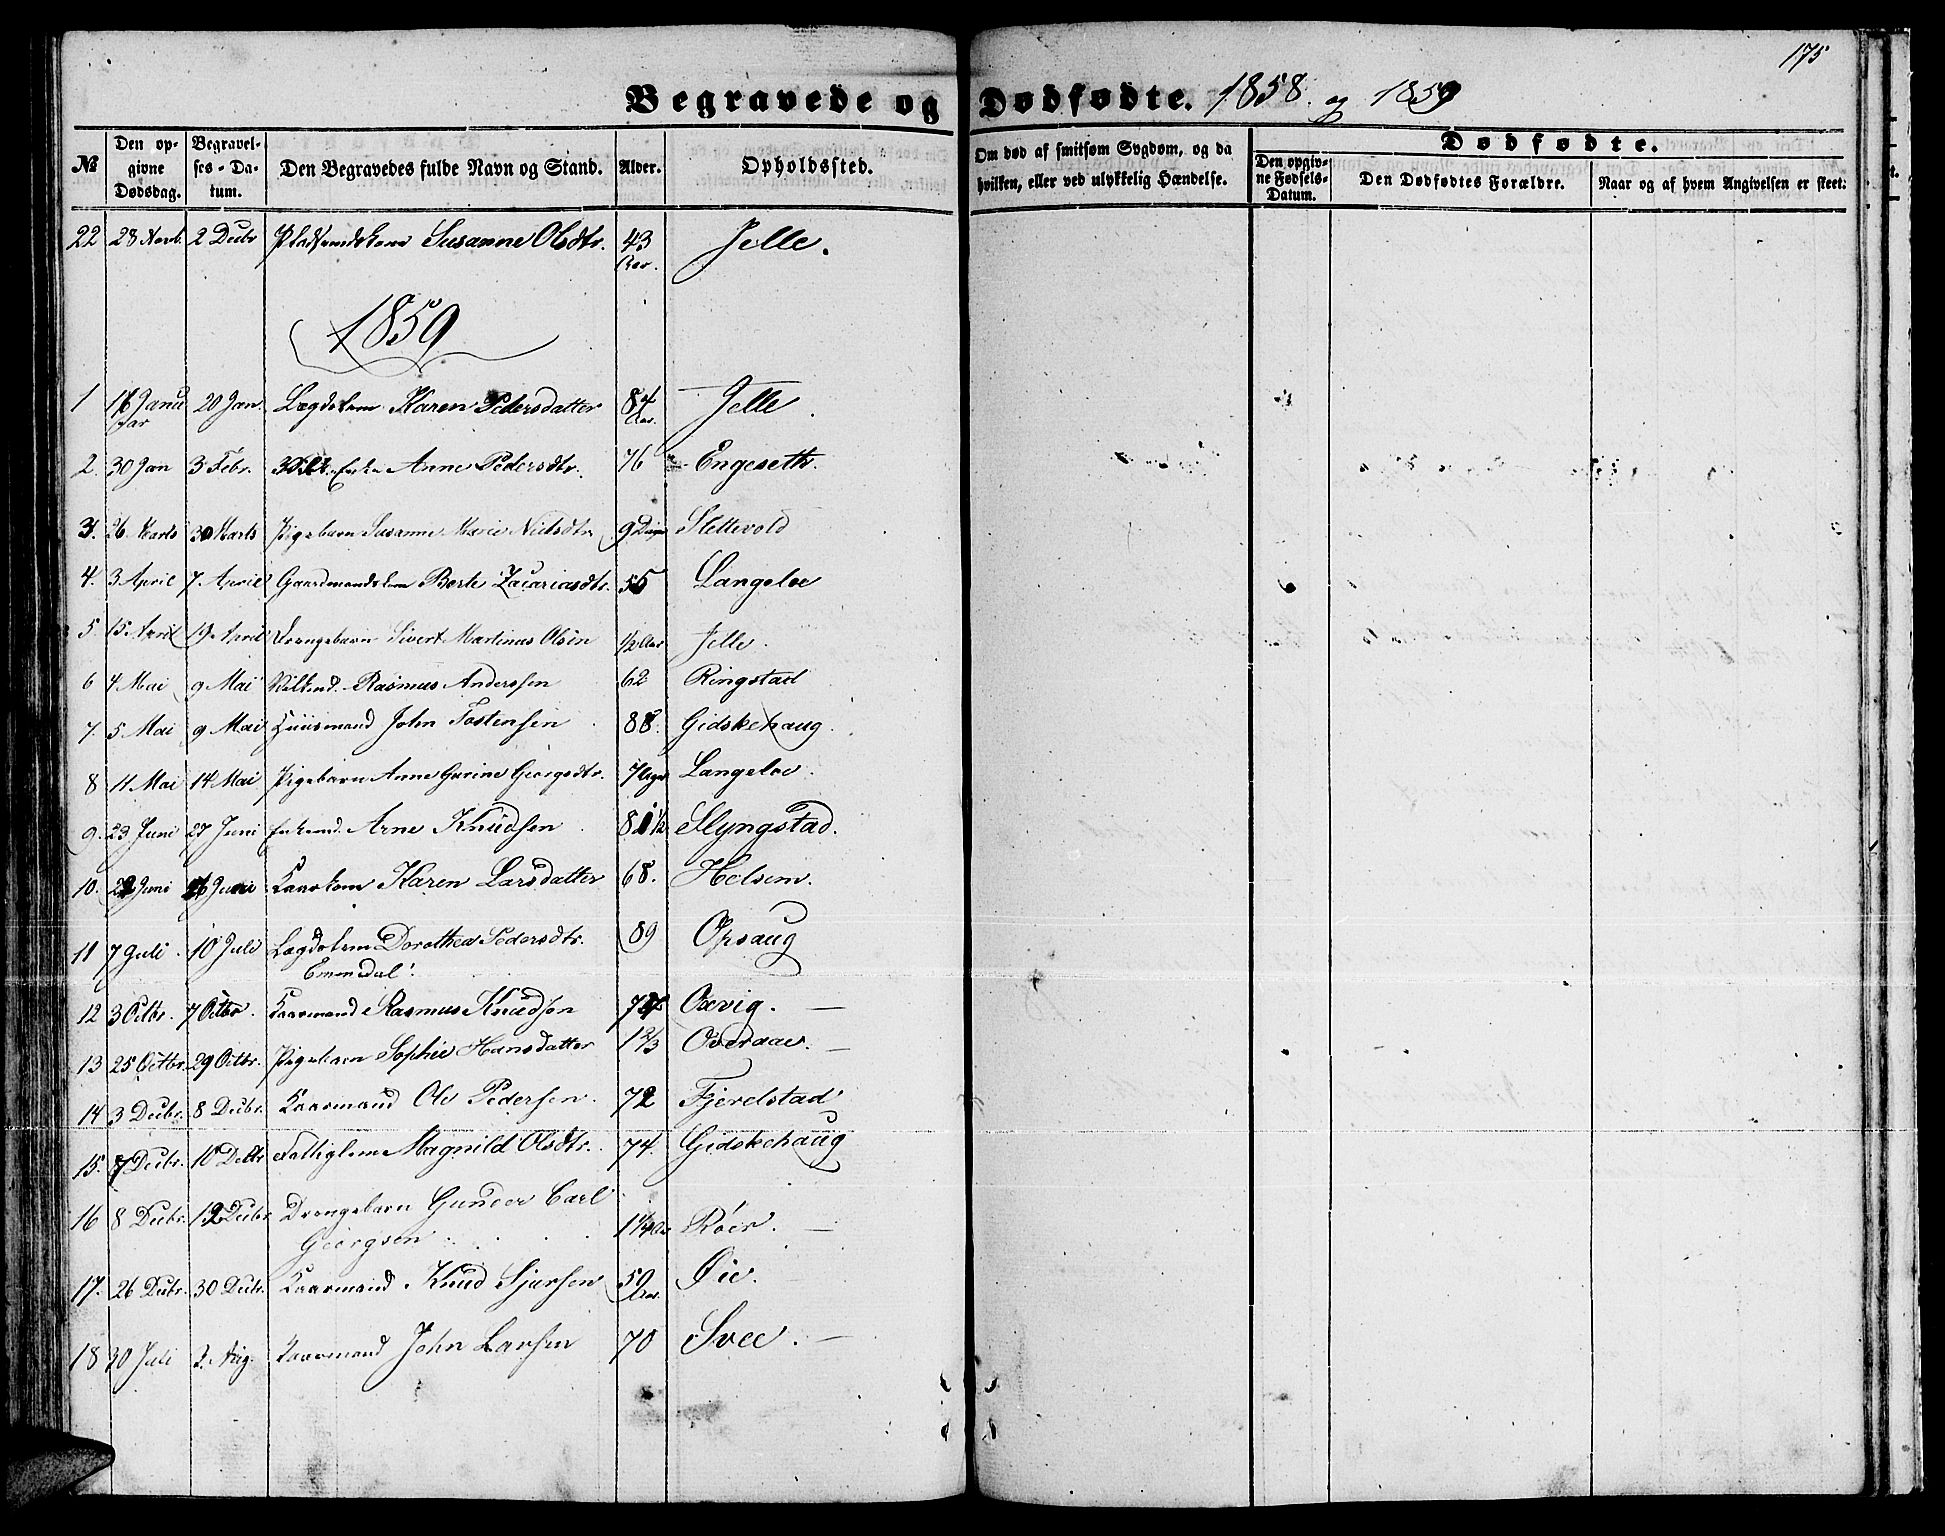 175
Begravede og Dødfødte. 1858. og 1859
№ Den opgivne Dødsdag. Begravelses-Datum. Den Begravedes fulde Navn og Stand. Alder. Opholdssted. Om død af smitsom Sygdom, og da hvilken, eller ved ulykkelig Hændelse. Dødfødte. Den opgivne Fødsels-Datum. Den Dødfødtes Forældre. Naar og af hvem Angivelsen er skeet.
22 28 Novb. 2 Decbr Susanne Olsdtr. 43 Aar. Jelle.
1859
1 Januar 20 Jan. Lægdslem Karen Pedersdatter 84 Aar. Jelle.
2. 30 Jan 3 Febr. Enke Anne Pedersdtr. 76 Engeseth.
3. 26 Marts 30 Marts Pigebarn Susanne Marie Nielsdtr. 9 Dage Slettevold
4. 3 April 7. April Gaardmandskone Berte Zacariasdtr. 55 Langeloe
5. 15 April 19. April Drengebarn Sivert Martinus Olsen 1/2 Aar Jelle.
6 4 Mai 9 Mai Rasmus Anderssen 62 Ringstad
7. 5 Mai 9 Mai Huusmand John Tostensen 88. Gidskehaug.
8 11 Mai 14 Mai Pigebarn Anne Gurine Georgsdtr. 7 Uger Langeloe.
9. 23 Juni 27 Juni Enkemd. Arne Knudsen 81 1/2 Slyngstad.
10. 22 Juni 26 Juni Kaarkone Karen Larsdatter 68. Helsem.
11 7 Juli. 10 Juli Lægdslem Dorothea Pedersdtr. 89 Opsaug
Emmedal.
12 3 Octbr. 7 Octbr. Kaarmand Rasmus Knudsen Oxvig. —
13 25 Octbr. 29 Octbr. Pigebarn Sophie Hansdatter 1 2/3 Overaae. —
14 3 Decbr. 8 Decbr. Kaarmand Ole Pedersen. 72 Fjerelstad
15. 7 Decbr. 10 Decbr Fattiglem Magnild Olsdtr. 74. Gidskehaug
16 8 Decbr. 12 Decbr Drengebarn Gunder Carl
Georgsen 1 1/4 Aar Röer. —
17. 26 Decbr. 30 Decbr. Kaarmand Knud Sjursen 59 Aar. Øie.
18 30 Juli 3. Aug. Kaarmand John Larsen 70 Svee. —